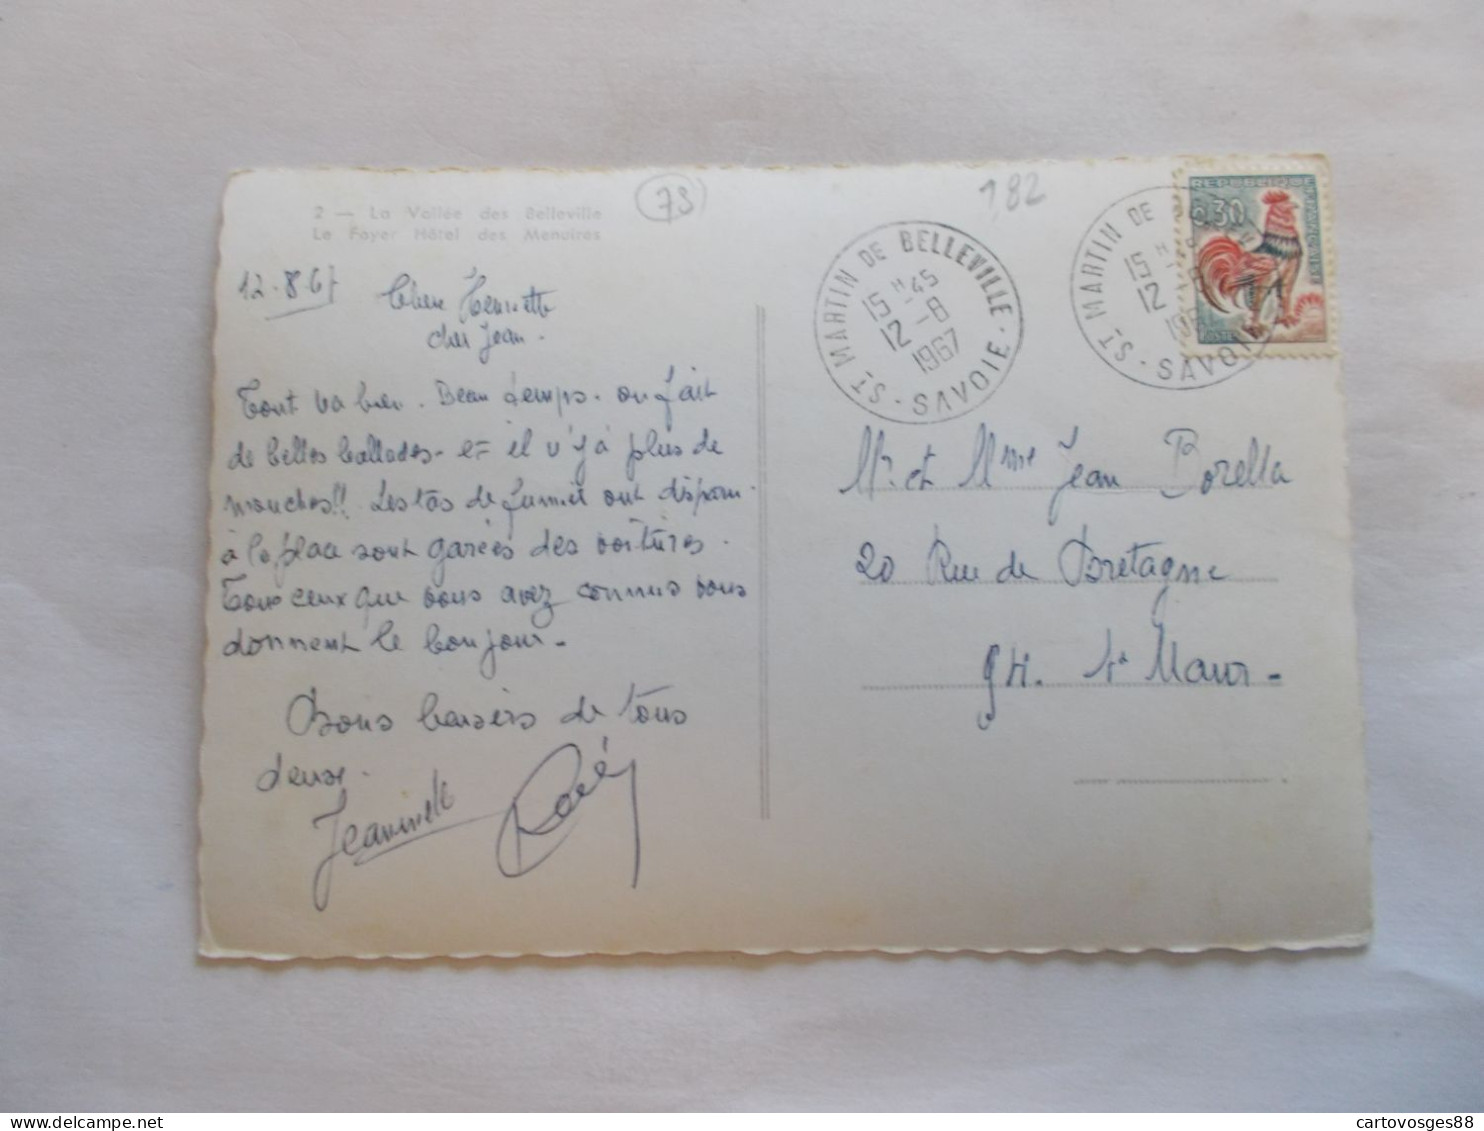 2 — La Vallée des Belleville
Le Foyer Hôtel des Menuires
73
182
12-8 67
Chère Henriette
cher Jean.
Tout va bien. Beau temps. on fait
de belles ballades - et il n'y a plus de
mouches!! Les tas de fumier ont disparu
à la place sont garées des voitures.
Tous ceux que vous avez connus vous
donnent le bonjour -
Bons baisers de tous
deux.
Jeannette
ST MARTIN DE BELLEVILLE
15 H 45
12 - 8
1967
SAVOIE
ST MARTIN DE
15 H
12
SAVOIE
REPUBLIQUE FRANCAISE
0,30
POSTES
Mr et Mme Jean Borella
20 Rue de Bretagne
94. St Maur -
cartovosges88